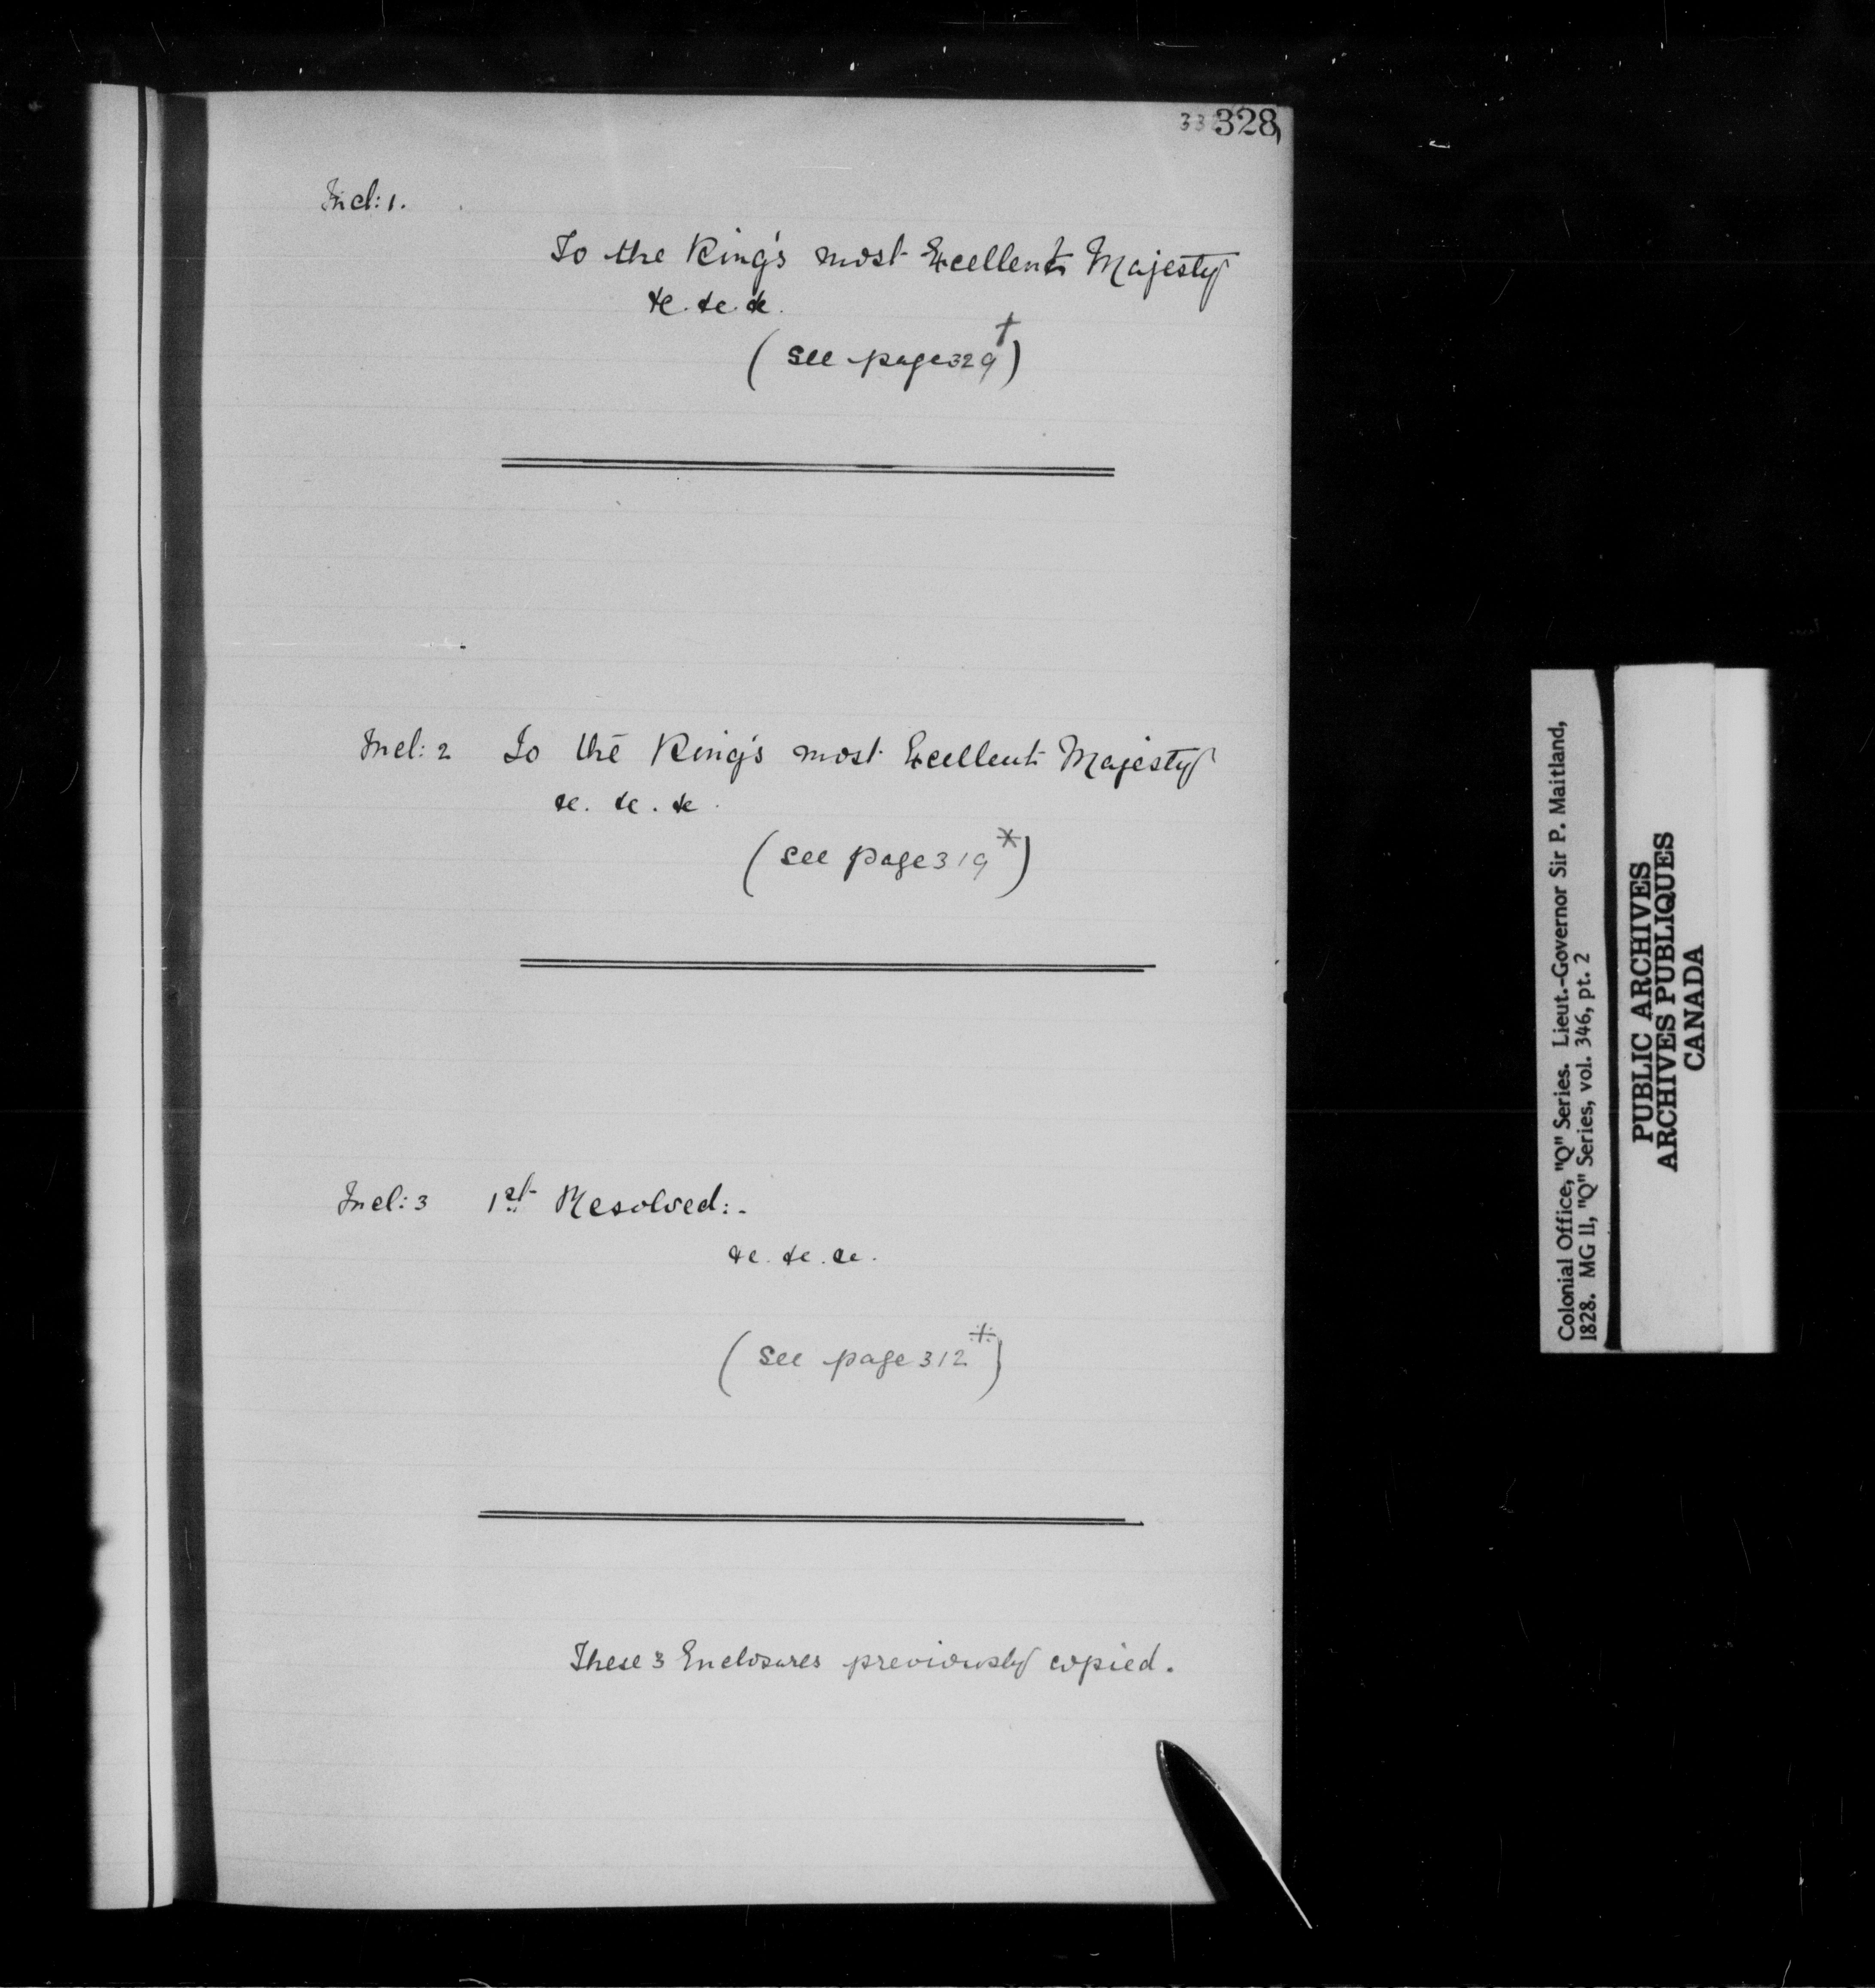 328
Incl: 1.
To the King's most Excellent Majesty
&c. &c. &c.
(see page 329†)
Incl: 2 To the King's most Excellent Majesty
&c. &c. &c.
(see page 319*)
Incl: 3 1st Resolved:-
&c. &c. &c.
(see page 312‡)
These 3 Enclosures previously copied.
Colonial Office, "Q" Series. Lieut.-Governor Sir P. Maitland,
1828. MG 11, "Q" Series, vol. 346, pt. 2
PUBLIC ARCHIVES
ARCHIVES PUBLIQUES
CANADA